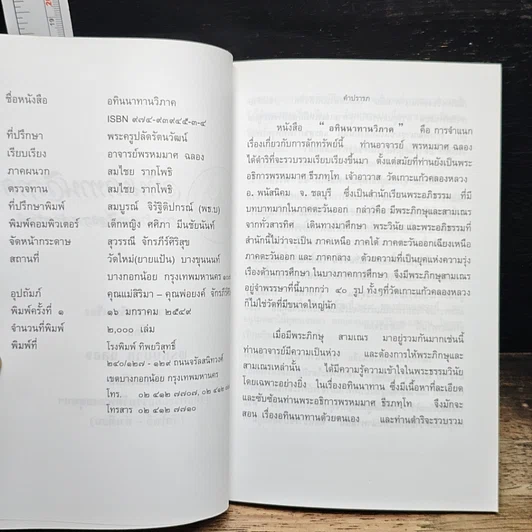 ชื่อหนังสือ อทินนาทานวิภาค
ISBN ๙๗๔-๙๓๙๔๕-๓-๔
ที่ปรึกษา พระครูปลัดรัตนวัฒน์
เรียบเรียง อาจารย์พรหมมาศ ฉลอง
ภาคผนวก สมไชย รากโพธิ
ตรวจทาน สมไชย รากโพธิ
ที่ปรึกษาพิมพ์ สมบูรณ์ จิรัฐิติปกรณ์ (พธ.บ)
พิมพ์คอมพิวเตอร์ เด็กหญิง ศศิภา มีนชัยนันท์
จัดหน้ากระดาษ สุวรรณี จักรภีร์ศิริสุข
สถานที่ วัดใหม่(ยายแป้น) บางขุนนนท์
บางกอกน้อย กรุงเทพมหานคร
อุปถัมภ์ คุณแม่สิริมา - คุณพ่อยงค์ จักรภีร์
พิมพ์ครั้งที่ ๑ ๑๖ มกราคม ๒๕๔๙
จำนวนที่พิมพ์ ๒,๐๐๐ เล่ม
พิมพ์ที่ โรงพิมพ์ ทิพยวิสุทธิ์
๒๔๐/๑๒๗ - ๑๒๙ ถนนจรัลสนิทวงศ์
เขตบางกอกน้อย กรุงเทพมหานคร
โทร. ๐๒ ๔๑๒ ๗๗๐๗, ๐๒ ๔๑๒
โทรสาร ๐๒ ๔๑๒ ๗๗๑๐
คำปรารภ
หนังสือ “ อทินนาทานวิภาค ” คือ การจำแนก
เรื่องเกี่ยวกับการลักทรัพย์นี้ ท่านอาจารย์ พรหมมาศ ฉลอง
ได้ดำริที่จะรวบรวมเรียบเรียงขึ้นมา ตั้งแต่สมัยที่ท่านยังเป็นพระ
อธิการพรหมมาศ ธีรภทฺโท เจ้าอาวาส วัดเกาะแก้วคลองหลวง
อ. พนัสนิคม จ. ชลบุรี ซึ่งเป็นสำนักเรียนพระอภิธรรม ที่มี
บทบาทมากในภาคตะวันออก กล่าวคือ มีพระภิกษุและสามเณร
จากทั่วสารทิศ เดินทางมาศึกษา พระวินัย และพระอภิธรรมที่
สำนักนี้ไม่ว่าจะเป็น ภาคเหนือ ภาคใต้ ภาคตะวันออกเฉียงเหนือ
ภาคตะวันออก และ ภาคกลาง ด้วยความที่เป็นยุคแห่งความรุ่ง
เรืองด้านการศึกษา ในบางภาคการศึกษา จึงมีพระภิกษุสามเณร
อยู่จำพรรษาที่นี้มากกว่า ๔๐ รูป ทั้งๆที่วัดเกาะแก้วคลองหลวง
ก็ไม่ใช่วัดที่มีขนาดใหญ่นัก
เมื่อมีพระภิกษุ สามเณร มาอยู่รวมกันมากเช่นนี้
ท่านอาจารย์มีความเป็นห่วง และต้องการให้พระภิกษุและ
สามเณรเหล่านั้น ได้มีความรู้ความเข้าใจในพระธรรมวินัย
โดยเฉพาะอย่างยิ่ง ในเรื่องอทินนาทาน ซึ่งมีเนื้อหาที่ละเอียด
และซับซ้อนท่านพระอธิการพรหมมาศ ธีรภทฺโท จึงมักจะ
สอน เรื่องอทินนาทานด้วยตนเอง และท่านดำริจะรวบรวม